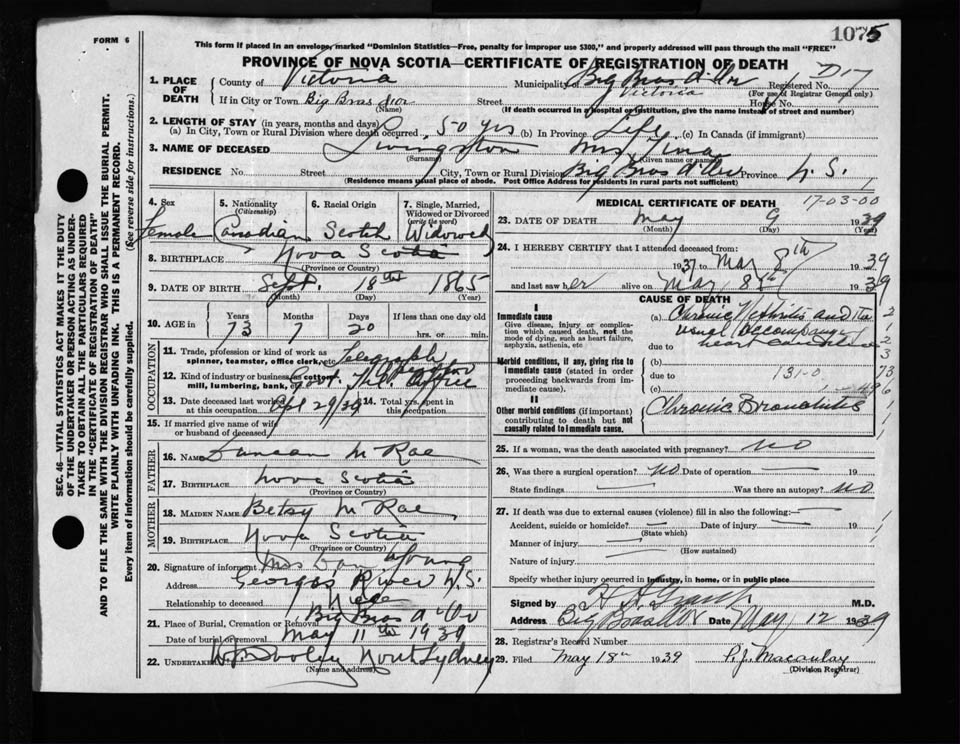 1075
FORM 6
This form if placed in an envelope, marked "Dominion Statistics—Free, penalty for improper use $300," and properly addressed will pass through the mail "FREE"
PROVINCE OF NOVA SCOTIA—CERTIFICATE OF REGISTRATION OF DEATH
1. PLACE OF DEATH
County of Victoria Municipality Big Bras d'Or Registered No. D17
Victoria (For use of Registrar General only)
If in City or Town Big Bras d'or Street House No.
(Name) (If death occurred in hospital or institution, give the name instead of street and number)
2. LENGTH OF STAY (in years, months and days)
(a) In City, Town or Rural Division where death occurred 50 yrs (b) In Province Life (c) In Canada (if immigrant)
3. NAME OF DECEASED Livingston Mrs Tena
(Surname) (Given name or names)
RESIDENCE No. Street City, Town or Rural Division Big Bras d'Or Province N.S.
(Residence means usual place of abode. Post Office Address for residents in rural parts not sufficient)
4. Sex Female
5. Nationality (Citizenship) Canadian
6. Racial Origin Scotch
7. Single, Married, Widowed or Divorced (write the word) Widowed
8. BIRTHPLACE Nova Scotia
(Province or Country)
9. DATE OF BIRTH Sept. 18th 1865
(Month) (Day) (Year)
10. AGE in Years Months Days If less than one day old
73 7 20 hrs. or min.
OCCUPATION
11. Trade, profession or kind of work as spinner, teamster, office clerk, etc. Telegraph
12. Kind of industry or business, as cotton mill, lumbering, bank, etc. Govt. Office
13. Date deceased last worked at this occupation Apl 29/39
14. Total yrs. spent in this occupation
15. If married give name of wife or husband of deceased
FATHER
16. NAME Duncan McRae
17. BIRTHPLACE Nova Scotia
(Province or Country)
MOTHER
18. MAIDEN NAME Betsy McRae
19. BIRTHPLACE Nova Scotia
(Province or Country)
20. Signature of informant Mrs Dan Young
Address Georges River N.S.
Relationship to deceased Niece
21. Place of Burial, Cremation or Removal Big Bras d'Or
Date of burial or removal May 11th 1939
22. UNDERTAKER Dooley North Sydney
(Name and address)
MEDICAL CERTIFICATE OF DEATH
17-03-00
23. DATE OF DEATH May 9 1939
(Month) (Day) (Year)
24. I HEREBY CERTIFY that I attended deceased from:
1937 to May 8th 1939
and last saw her alive on May 8th 1939
CAUSE OF DEATH
I
Immediate cause
Give disease, injury or complication which caused death, not the mode of dying, such as heart failure, asphyxia, asthenia, etc
(a) Chronic Nephritis and the usual accompanying
due to heart condition
Morbid conditions, if any, giving rise to immediate cause (stated in order proceeding backwards from immediate cause).
(b)
due to 131-0
(c)
II
Other morbid conditions (if important) contributing to death but not causally related to immediate cause.
Chronic Bronchitis
25. If a woman, was the death associated with pregnancy? NO
26. Was there a surgical operation? NO Date of operation — 19
State findings — Was there an autopsy? NO
27. If death was due to external causes (violence) fill in also the following:—
Accident, suicide or homicide? — Date of injury — 19
(State which)
Manner of injury —
(How sustained)
Nature of injury —
Specify whether injury occurred in industry, in home, or in public place
Signed by M.D.
Address Big Bras d'Or Date May 12 1939
28. Registrar's Record Number
29. Filed May 18th 1939 P.J. Macaulay
(Division Registrar)
SEC. 46—VITAL STATISTICS ACT MAKES IT THE DUTY
OF THE UNDERTAKER OR PERSON ACTING AS UNDERTAKER TO OBTAIN ALL THE PARTICULARS REQUIRED
IN THE "CERTIFICATE OF REGISTRATION OF DEATH" AND TO FILE THE SAME WITH THE DIVISION REGISTRAR WHO SHALL ISSUE THE BURIAL PERMIT.
WRITE PLAINLY WITH UNFADING INK. THIS IS A PERMANENT RECORD.
Every item of information should be carefully supplied. (See reverse side for instructions.)